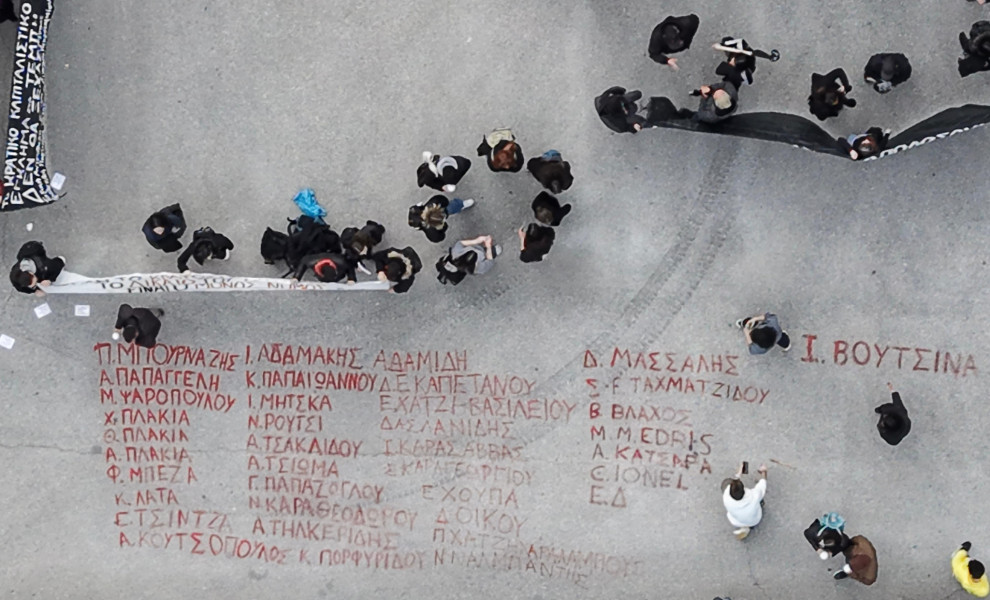 ΚΡΑΤΙΚΟ ΚΑΠΙΤΑΛΙΣΤΙΚΟ
ΕΓΚΛΗΜΑ ΣΤΑ ΤΕΜΠΗ
ΔΕΝ ΘΑ ΞΕΧΑΣΩ
Π.ΜΠΟΥΡΝΑΖΗΣ
Α.ΠΑΠΑΓΓΕΛΗ
Μ.ΨΑΡΟΠΟΥΛΟΥ
Χ.ΠΛΑΚΙΑ
Θ.ΠΛΑΚΙΑ
Α.ΠΛΑΚΙΑ
Φ.ΜΠΕΖΑ
Κ.ΛΑΤΑ
Ε.ΤΣΙΝΤΖΑ
Α.ΚΟΥΤΣΟΠΟΥΛΟΣ
Ι.ΑΔΑΜΑΚΗΣ
Κ.ΠΑΠΑΙΩΑΝΝΟΥ
Ι.ΜΗΤΣΚΑ
Ν.ΡΟΥΤΣΙ
Α.ΤΣΑΚΛΙΔΟΥ
Α.ΤΣΙΩΜΑ
Γ.ΠΑΠΑΖΟΓΛΟΥ
Ν.ΚΑΡΑΘΕΟΔΩΡΟΥ
Α.ΤΗΛΚΕΡΙΔΗΣ
Κ.ΠΟΡΦΥΡΙΔΟΥ
ΑΔΑΜΙΔΗ
Δ.Ε.ΚΑΠΕΤΑΝΟΥ
Ε.ΧΑΤΖΗ-ΒΑΣΙΛΕΙΟΥ
Δ.ΑΣΛΑΝΙΔΗΣ
Ι.ΚΑΡΑΣΑΒΒΑΣ
Σ.ΚΑΡΑΓΕΩΡΓΙΟΥ
Ε.ΧΟΥΠΑ
Δ.ΟΙΚΟΥ
Π.ΧΑΤΖΗΧΑΡΑΛΑΜΠΟΥΣ
Ν.ΝΑΛΜΠΑΝΤΗΣ
Δ. ΜΑΣΣΑΛΗΣ
Σ-Γ ΤΑΧΜΑΤΖΙΔΟΥ
Β. ΒΛΑΧΟΣ
Μ.Μ.EDRIS
Α. ΚΑΤΣΑΡΑ
C.IONEL
Ε.Δ
Ι. ΒΟΥΤΣΙΝΑ